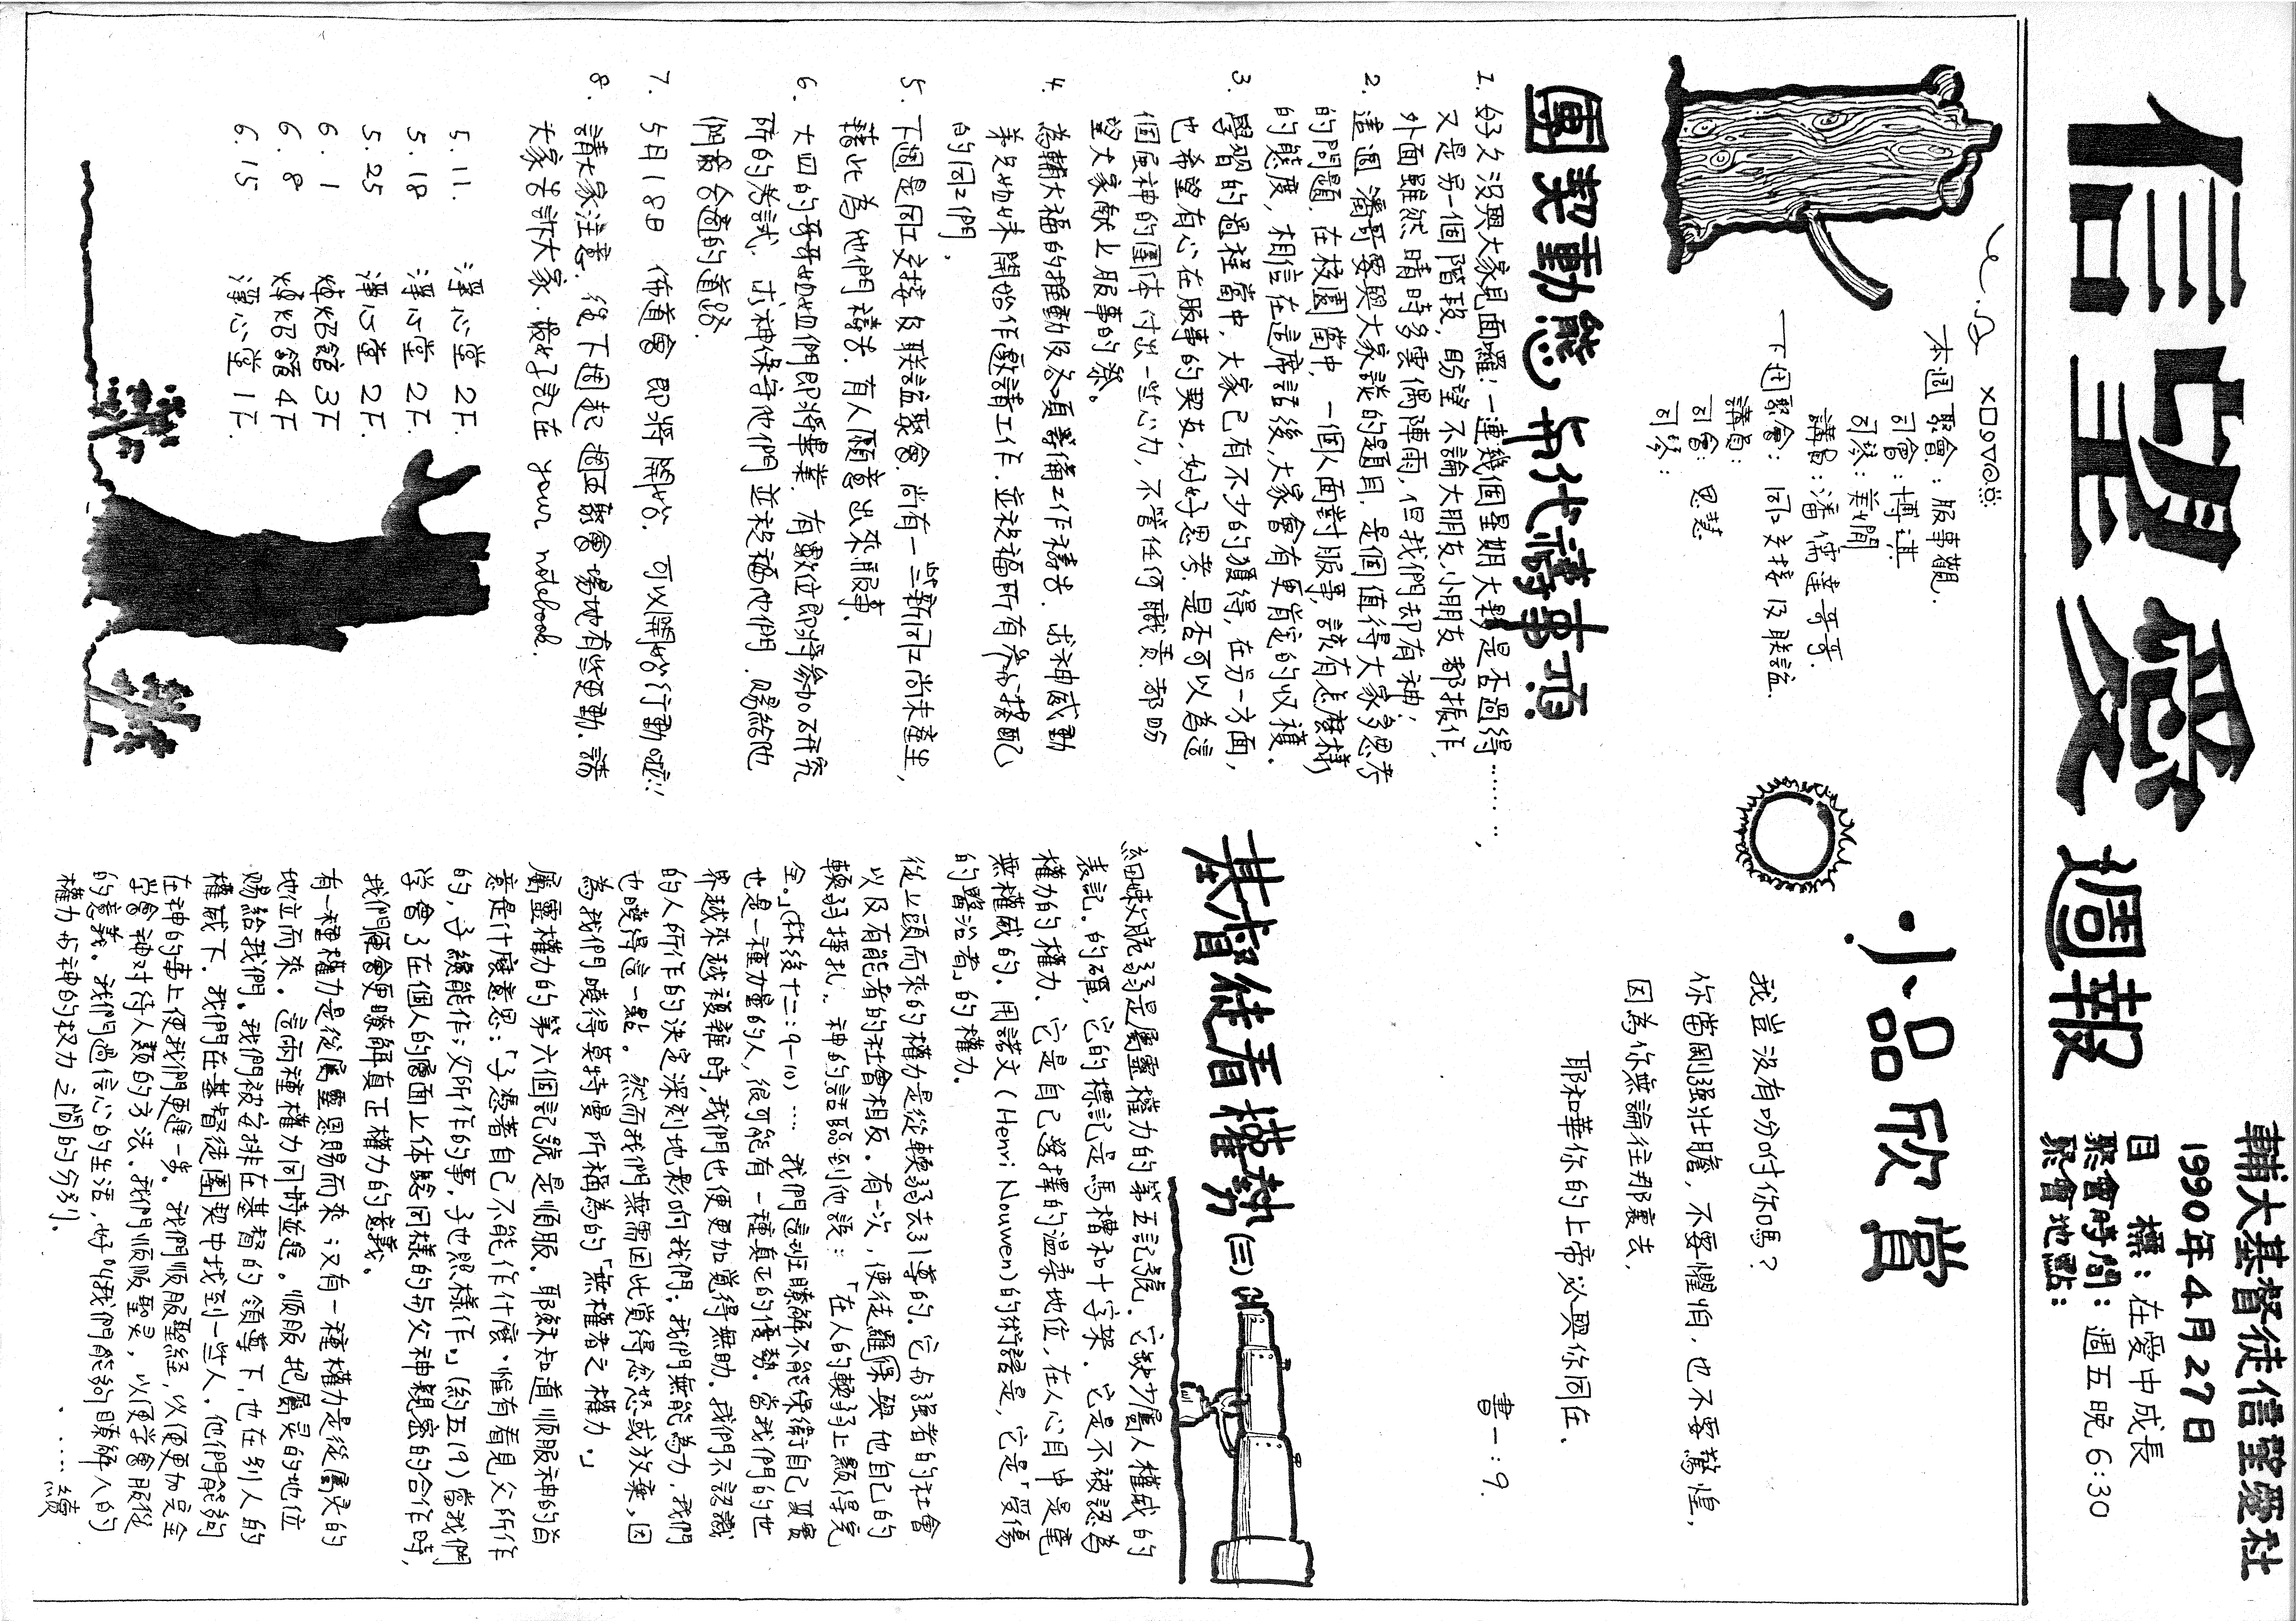 信望愛週報
輔大基督徒信望愛社
1990年4月27日
目 標：在愛中成長
聚會時間：週五晚6:30
聚會地點：
本週聚會：服事觀．
司會：博淇
司琴：美嫺
講員：潘儒達哥哥．
下週聚會：同工交接及聯誼．
講員：
司會：思慧
司琴：
團契動態與代禱事項
1. 好久沒與大家見面囉！一連幾個星期大夥是否過得……，
又是另一個階段，盼望不論大朋友、小朋友都振作，
外面雖然晴時多雲偶陣雨，但我們却有神；
2. 這週潘哥要與大家談的題目，是個值得大家多思考
的問題．在校園當中，一個人面對服事，該有怎麼樣
的態度，相信在這席話後，大家會有更肯定的收穫．
3. 學習的過程當中，大家已有不少的獲得，在另一方面，
也希望有心在服事的契友，好好思考．是否可以為這
個屬神的團体付出一些心力，不管任何職責．都盼
望大家獻上服事的祭。
4. 為輔大福的推動及各項籌備工作禱告．求神感動
弟兄姐妹開始作邀請工作．並祝福所有參加搭配
的同工們．
5. 下週是同工交接及联誼聚會．尚有一些新同工尚未產生，
藉此為他們禱告．有人願意出來服事．
6. 大四的哥哥姐姐們即將畢業．有數位即將參加研究
所的考試．求神保守他們並祝福他們．賜給他
們最合適的道路．
7. 5月18日 佈道會 即將開始．可以開始行動啦!!
8. 請大家注意．從下週起週五聚會場地有些更動．請
大家告訴大家．最好記在 your notebook．
5.11. 澤心堂 2F.
5.18 澤心堂 2F.
5.25 澤心堂 2F.
6.1 焯炤館 3F
6.8 焯炤館 4F
6.15 澤心堂 1F.
小品欣賞
我豈沒有吩咐你嗎？
你當剛强壯膽．不要懼怕，也不要驚惶，
因為你無論往那裏去．
耶和華你的上帝必與你同在．
書一：9．
基督徒看權勢(三)
柔軟脆弱是屬靈權力的第五記號．它缺少屬人權威的
表記．的確，它的標記是馬槽和十字架．它是不被認為
權力的權力．它是自己選擇的溫柔地位，在人心目中是毫
無權威的．用諾文(Henri Nouwen)的術語是，它是「受傷
的醫治者」的權力．
從上頭而來的權力是從軟弱去引導的．它与強者的社會
以及有能者的社會相反．有一次，使徒羅保與他自己的
軟弱掙扎，神的話臨到他說：「在人的軟弱上顯得完
全。」(林後十二：9–10)…… 我們這班瞭解不能保衛自己要害
也是一種力量的人，很可能有一種真正的優勢．當我們的世
界越來越複雜時，我們也便更加覺得無助．我們不認識
的人所作的決定深刻地影响我們；我們無能為力．我們
也曉得這一點．然而我們無需因此覺得忿怒或放棄，因
為我們曉得莫特曼所稱為的「無權者之權力．」
屬靈權力的第六個記號就是順服．耶穌知道順服神的旨
意是什麼意思：「子憑著自己不能作什麼．惟有看見父所作
的，子纔能作；父所作的事，子也照樣作．」(約五19)當我們
学會了在個人的層面上体驗同樣的与父神親密的合作時，
我們便會更瞭解真正權力的意義．
有一種權力是從屬靈恩賜而來；又有一種權力是從屬灵的
地位而來．這兩種權力同時並進．順服把屬灵的地位
賜給我們．我們被安排在基督的領導下，也在別人的
權威下．我們在基督徒團契中找到一些人．他們能夠
在神的事上使我們更進一步．我們順服聖經，以便更加完全
学會神对待人類的方法．我們順服聖灵，以便学會服從
的意義．我們過信心的生活，好叫我們能夠瞭解人的
權力与神的权力之間的分別．
……續